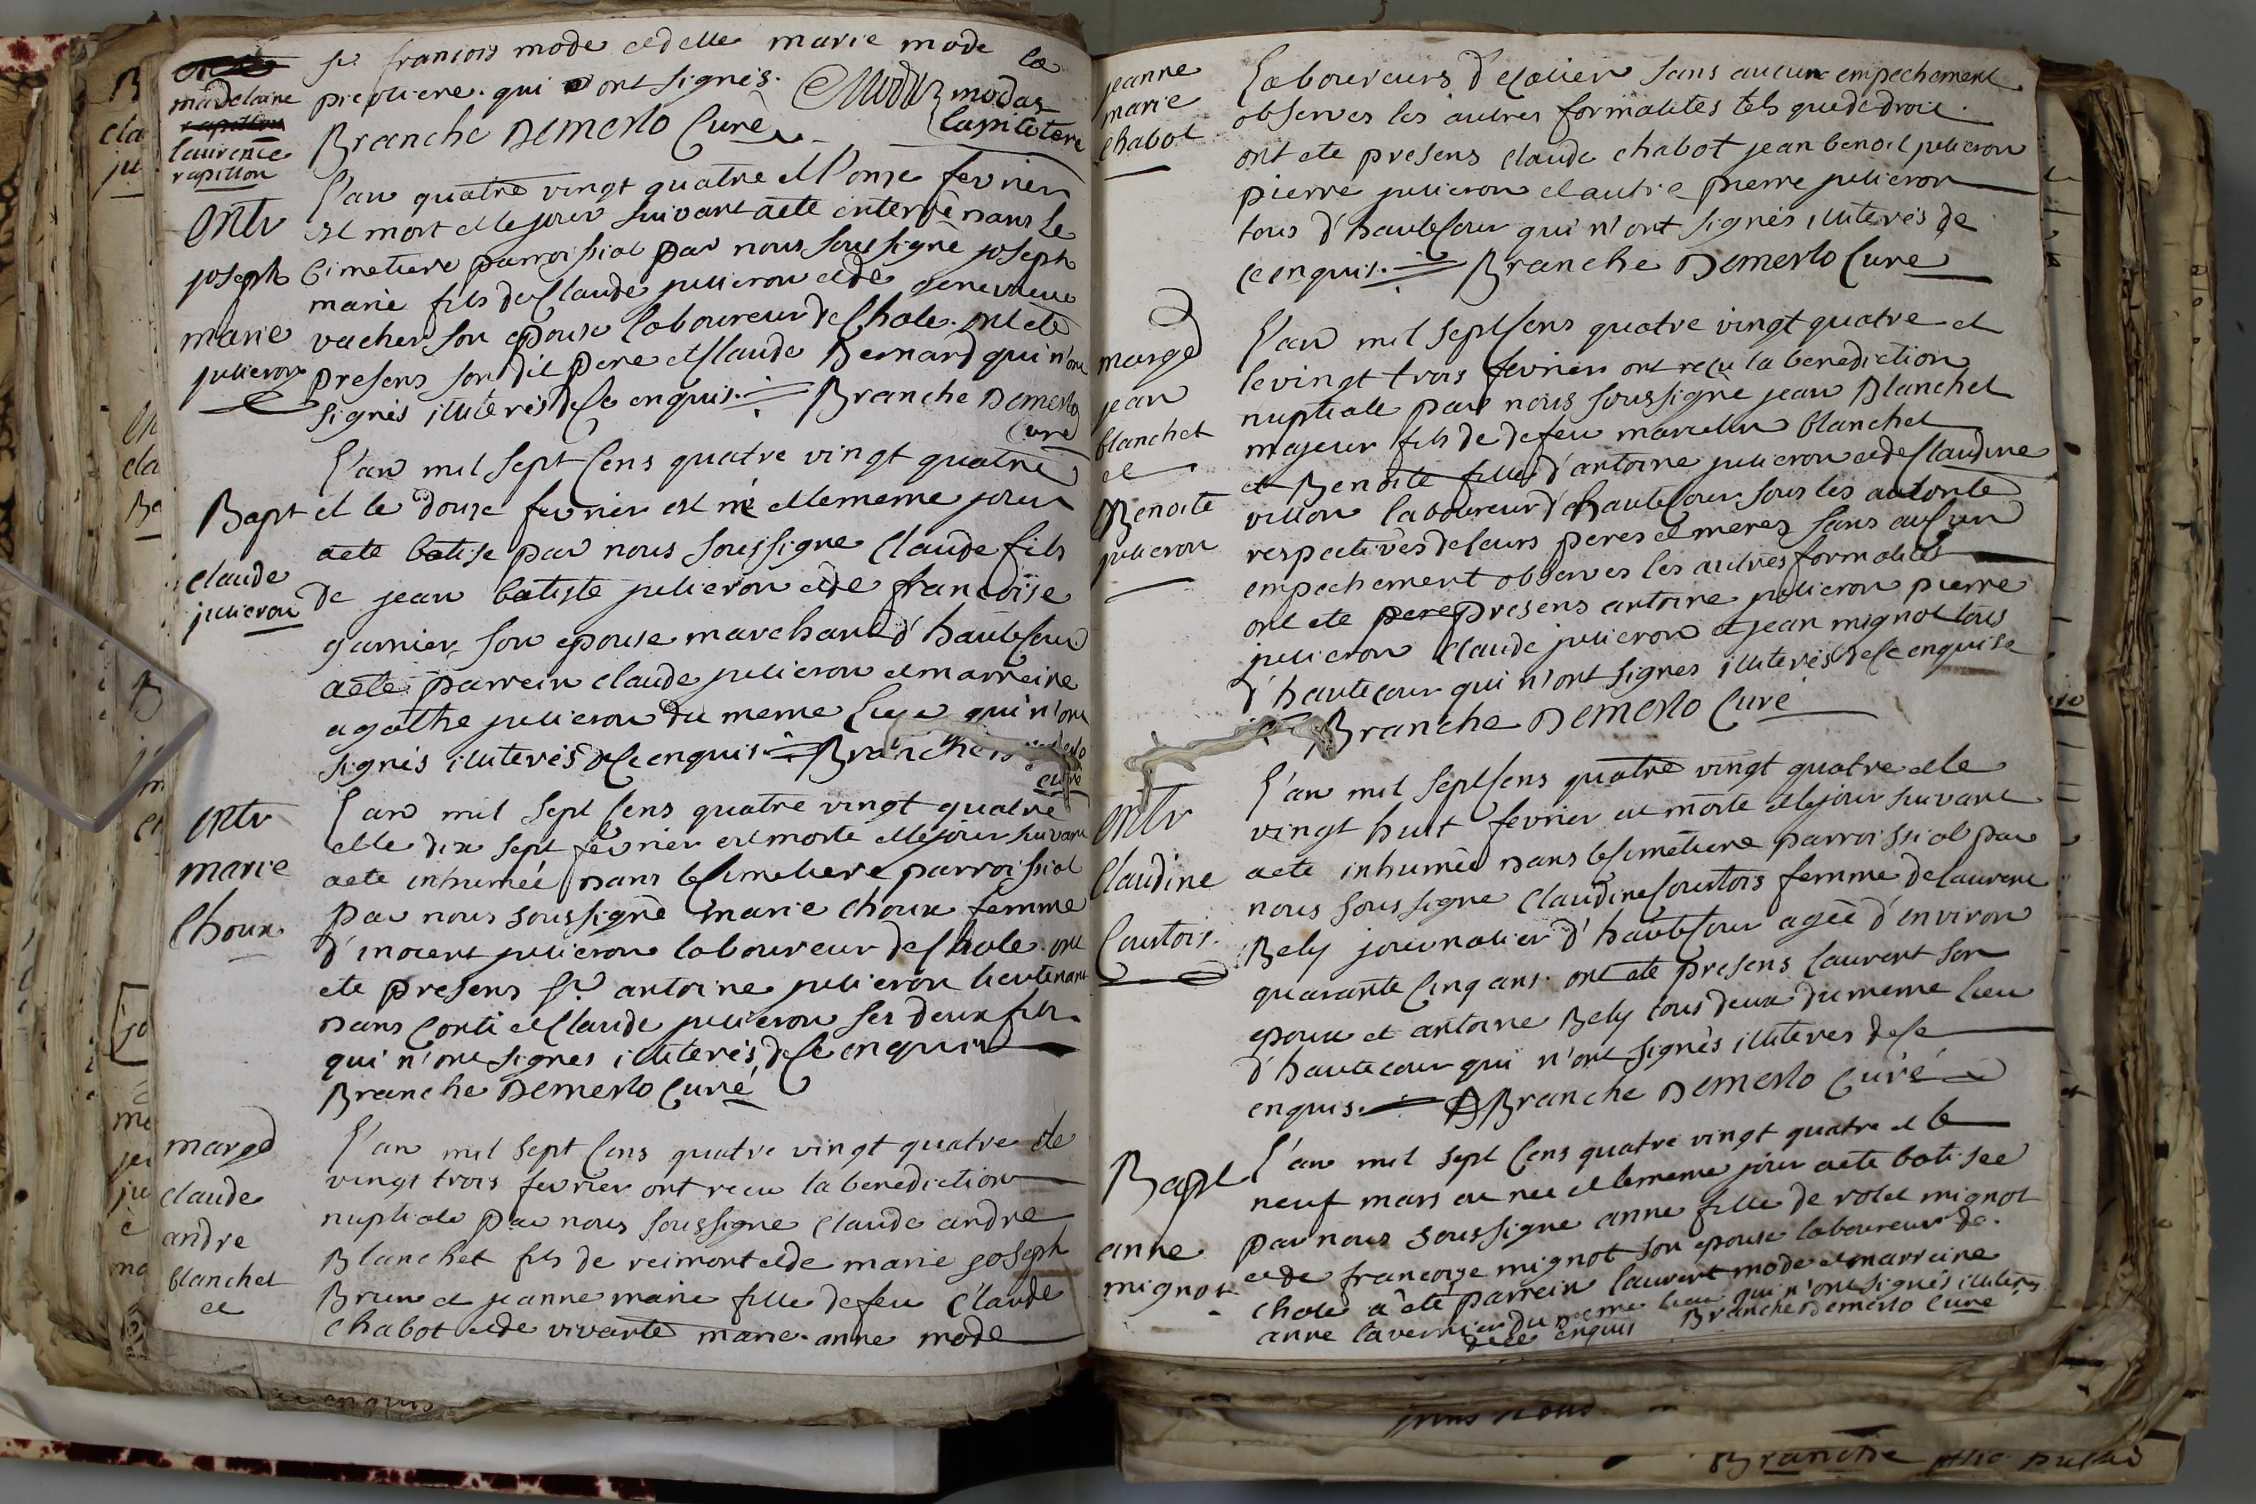 madelaine
laurence
rapillon
sr francois mode et delle marie mode la
pipotiere. qui ont signés.
Mode modas
lapilotere
Branche Demerlo Curé
Entr
joseph
marie
julieron
L'an quatre vingt quatre et l'onze fevrier
est mort et le jour suivant aété enterré dans le
Cimetiere parroissial par nous soussigné joseph
marie fils de Claude julieron et de genevieve
vacher son epouse laboureur de Chole. ont été
presens son dit pere et Claude Bernard qui n'ont
signés illiterés de Ce enquis. Branche Demerlo
Curé
Bapt
claude
julieron
L'an mil sept Cens quatre vingt quatre
et le douze fevrier est né et lememe jour
aété batisé par nous soussigné Claude fils
de jean batiste julieron et de francoise
garnier son epouse marchand d'hauteCour
aété parrein claude julieron et marreine
agathe julieron du meme Lieu qui n'ont
signés illiterés de Ce enquis Branche Demerlo
curé
Entr
marie
Choux
L'an mil sept Cens quatre vingt quatre
et le dix sept fevrier est morte et le jour suivant
aété inhumée dans le Cimetiere parroissial
par nous soussigné marie Choux femme
d'inocent julieron laboureur de Chole. ont
été presens sr. antoine julieron lieutenant
dans Conti et Claude julieron ses deux fils.
qui n'ont signés illiterés de Ce enquis
Branche Demerlo Curé
marge
claude
andre
blanchet
et
L'an mil sept Cens quatre vingt quatre et le
vingt trois fevrier ont recu la benediction
nuptiale par nous soussigné claude andre
Blanchet fils de reimont et de marie joseph
Brun et jeanne marie fille defeu Claude
Chabot et de vivante marie-anne mode
ce enquis
jeanne
marie
Chabot
Laboureurs d'Ecolier sans aucun empechement
observés les autres formalités tels que de droit.
ont été presens claude chabot jean benoit julieron
pierre julieron et autre pierre julieron
tous d'hauteCour qui n'ont signés illiterés de
Ce enquis. Branche Demerlo Curé
marge
jean
blanchet
et
Benoite
julieron
L'an mil sept Cens quatre vingt quatre et
le vingt trois fevrier ont reçu la benediction
nuptiale par nous soussigné jean Blanchet
majeur fils de defeu marcelin blanchet
et Benoite fille d'antoine julieron et de Claudine
villon laboureur d'hauteCour sous les autorité
respectives de leurs peres et meres sans auCun
empechement observés les autres formalités
ont été pere presens antoine julieron pierre
julieron Claude julieron et jean mignot tous
d'hautecour qui n'ont signés illiterés de Ce enquis
Branche Demerlo Curé
Entr
Claudine
Courtois.
L'an mil sept Cens quatre vingt quatre et le
vingt huit fevrier est morte et le jour suivant
aété inhumée dans le Cimetiere parroissial par
nous soussigné Claudine Courtois femme de laurent
Bely journalier d'hauteCour agée d'environ
quarante Cinq ans. ont été presens laurent son
epoux et antoine Bely tous deux du meme lieu
d'hautecour qui n'ont signés illiterés de Ce
enquis. Branche Demerlo Curé
Bapt
anne
mignot
L'an mil sept Cens quatre vingt quatre et le
neuf mars est née et lememe jour aété batisée
par nous soussigné anne fille de rolet mignot
et de francoise mignot son epouse laboureur de.
Chole a été parrein laurent mode et marreine
anne tavernier du meme lieu qui n'ont signés illiterés
de Ce enquis Branche Demerlo Curé
Branche